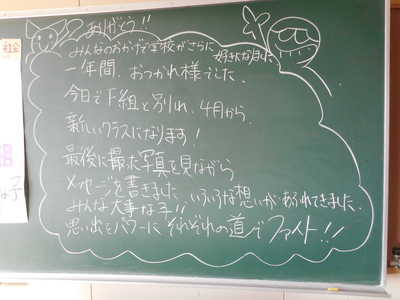 ありがとう!!
みんなのおかげで学校がさらに好きになりました
一年間、おつかれ様でした.
今日でF組と別れ、4月から、
新しいクラスになります!
最後に撮た写真を見ながら
メッセージを書きました いろいろな想いがあふれてきました.
みんな大事な子!!
思い出をパワーに それぞれの道でファイト!!
社会
子